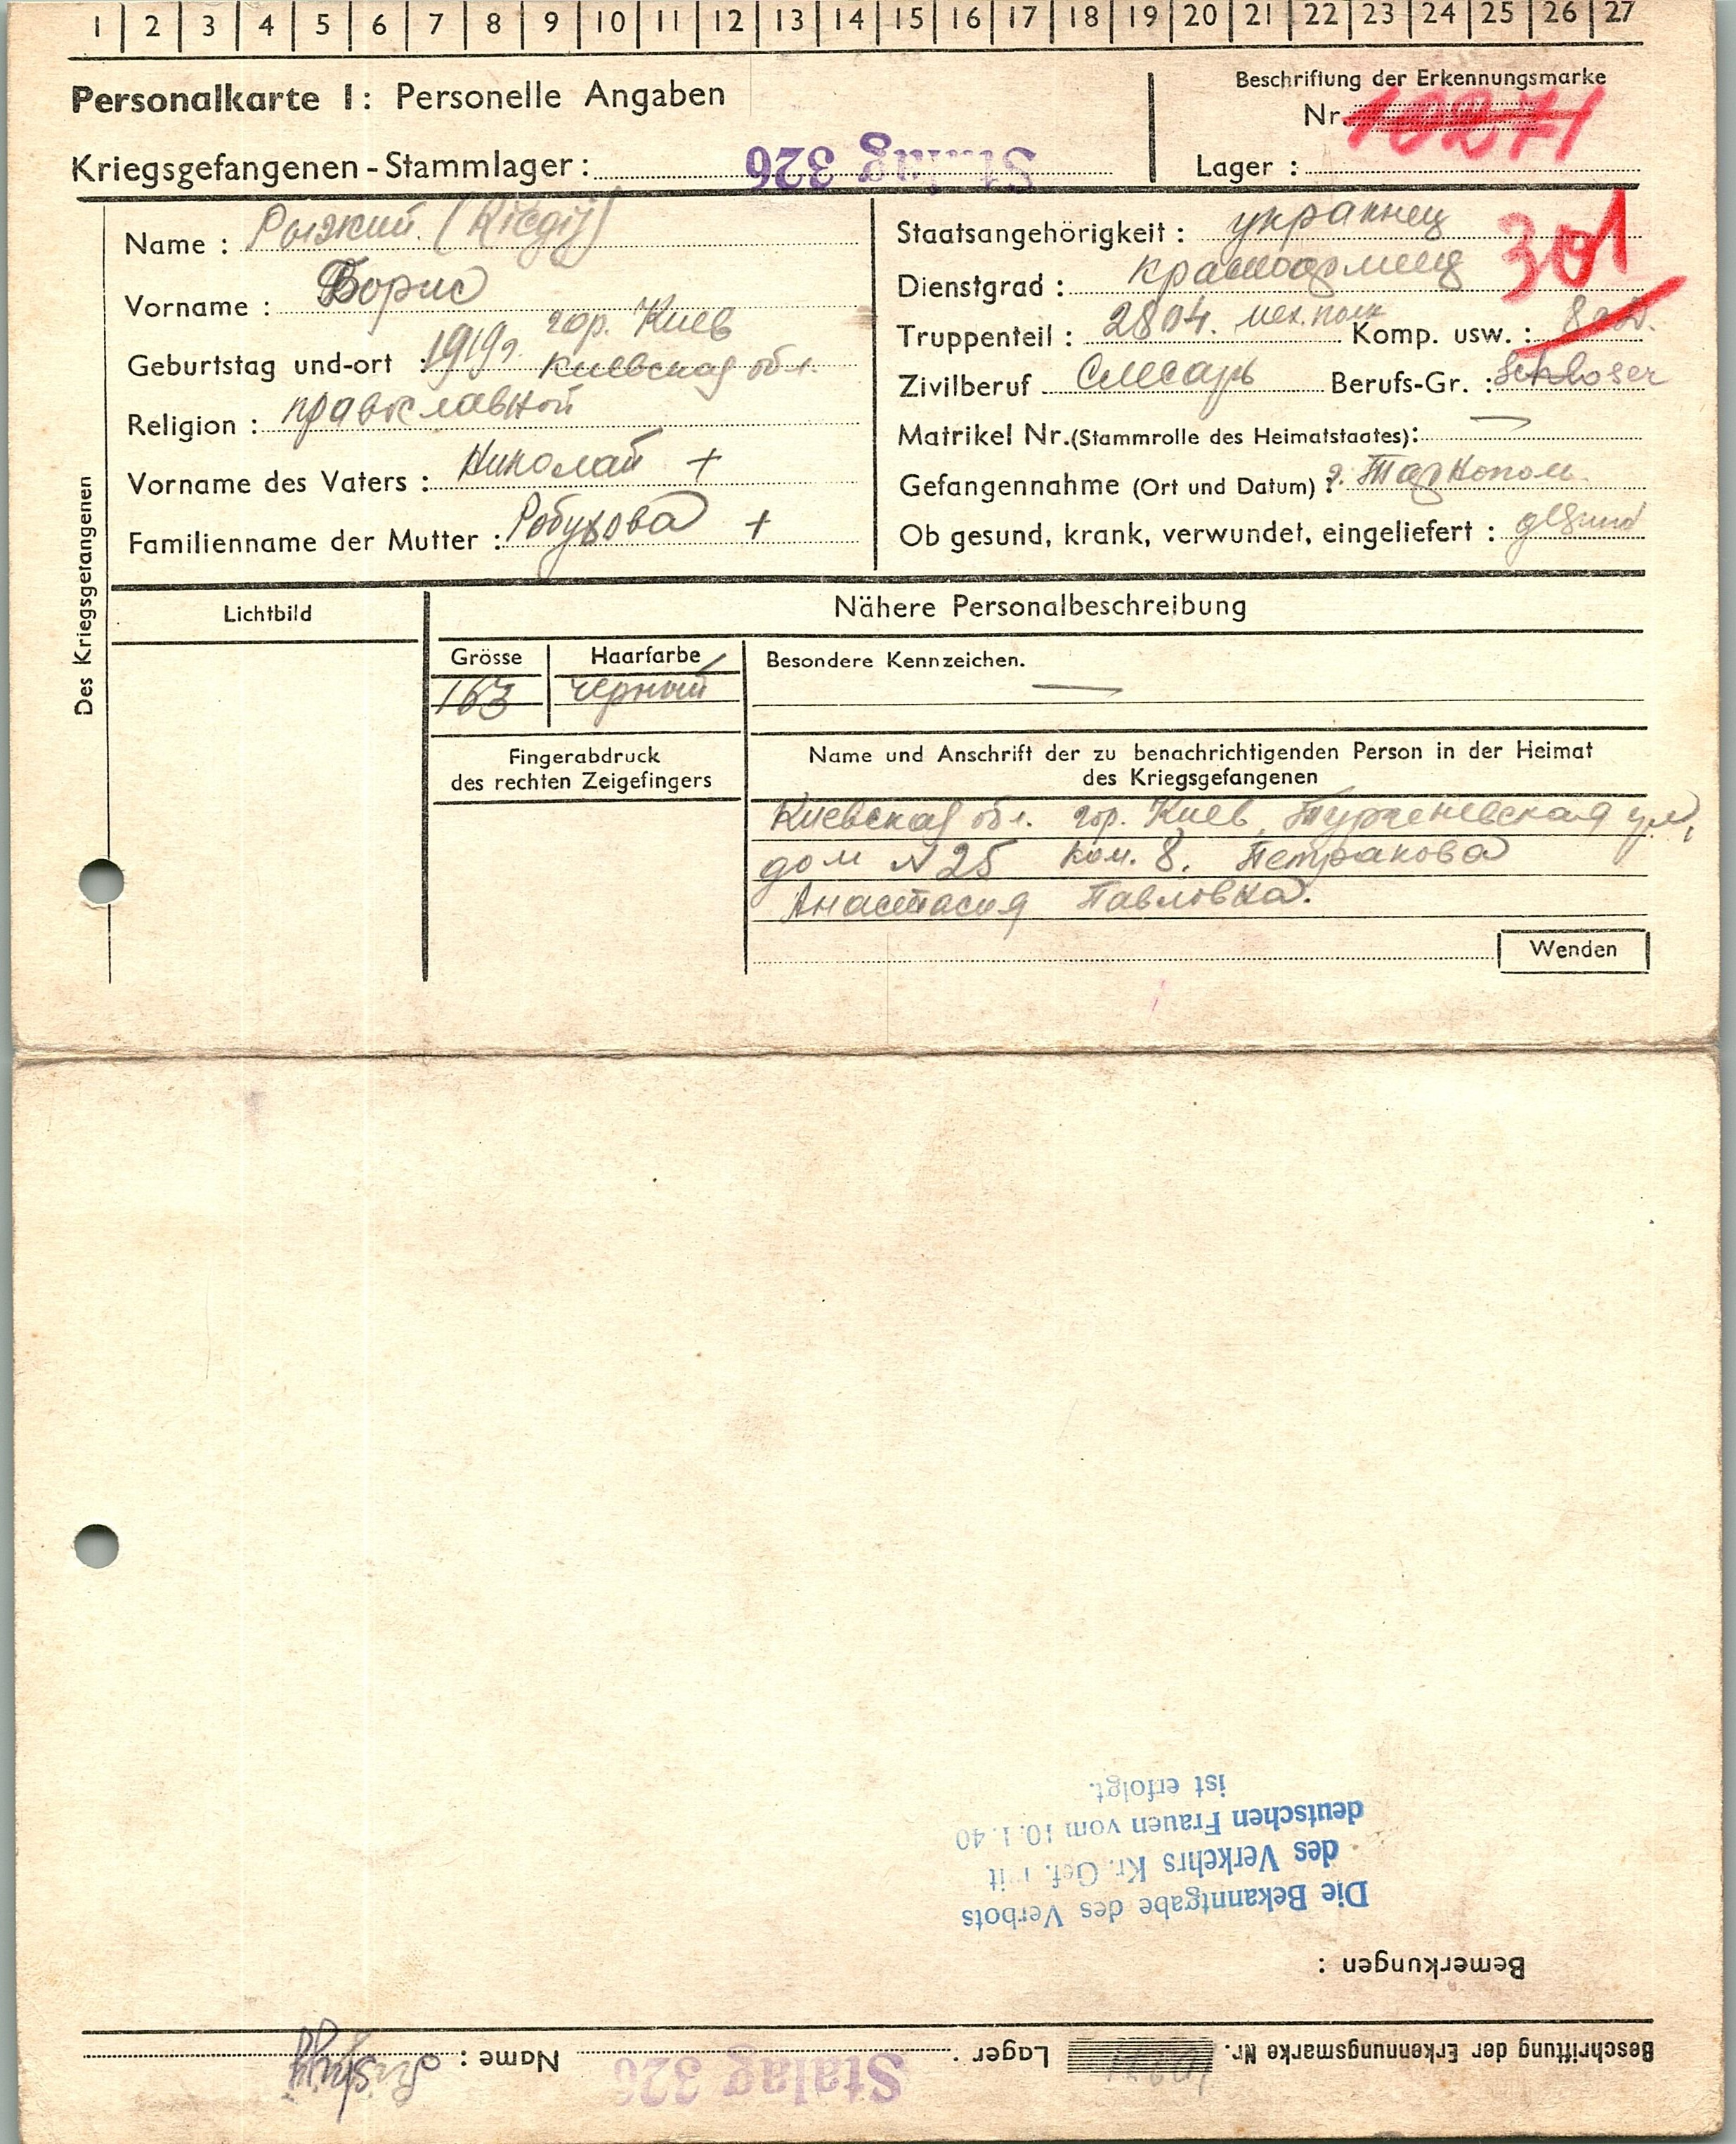 1 2 3 4 5 6 7 8 9 10 11 12 13 14 15 16 17 18 19 20 21 22 23 24 25 26 27
Personalkarte I: Personelle Angaben
Beschriftung der Erkennungsmarke
Nr.
Kriegsgefangenen-Stammlager: Stalag 326
Lager :
Des Kriegsgefangenen
Name : Рызкий (
Vorname : Борис
Geburtstag und-ort : 1919г. гор. Киев
Киевская обл.
Religion : православной
Vorname des Vaters : Николай +
Familienname der Mutter : +
Staatsangehörigkeit : украинец
301
Dienstgrad : красноармеец
Truppenteil : 2804. мех. полк Komp. usw. :
Zivilberuf Слесарь Berufs-Gr. : Schloser
Matrikel Nr.(Stammrolle des Heimatstaates): —
Gefangennahme (Ort und Datum) : г.
Ob gesund, krank, verwundet, eingeliefert : gesund
Lichtbild
Nähere Personalbeschreibung
Grösse
163
Haarfarbe
черный
Besondere Kennzeichen.
—
Fingerabdruck
des rechten Zeigefingers
Name und Anschrift der zu benachrichtigenden Person in der Heimat
des Kriegsgefangenen
Киевская обл. гор. Киев, Тургеневская ул,
дом N 25 ком. 8. Петракова
Анастасия Павловна.
Wenden
Beschriftung der Erkennungsmarke Nr. Lager : Stalag 326 Name :
Bemerkungen :
Die Bekanntgabe des Verbots
des Verkehrs Kr. Gef. mit
deutschen Frauen vom 10.1.40
ist erfolgt.